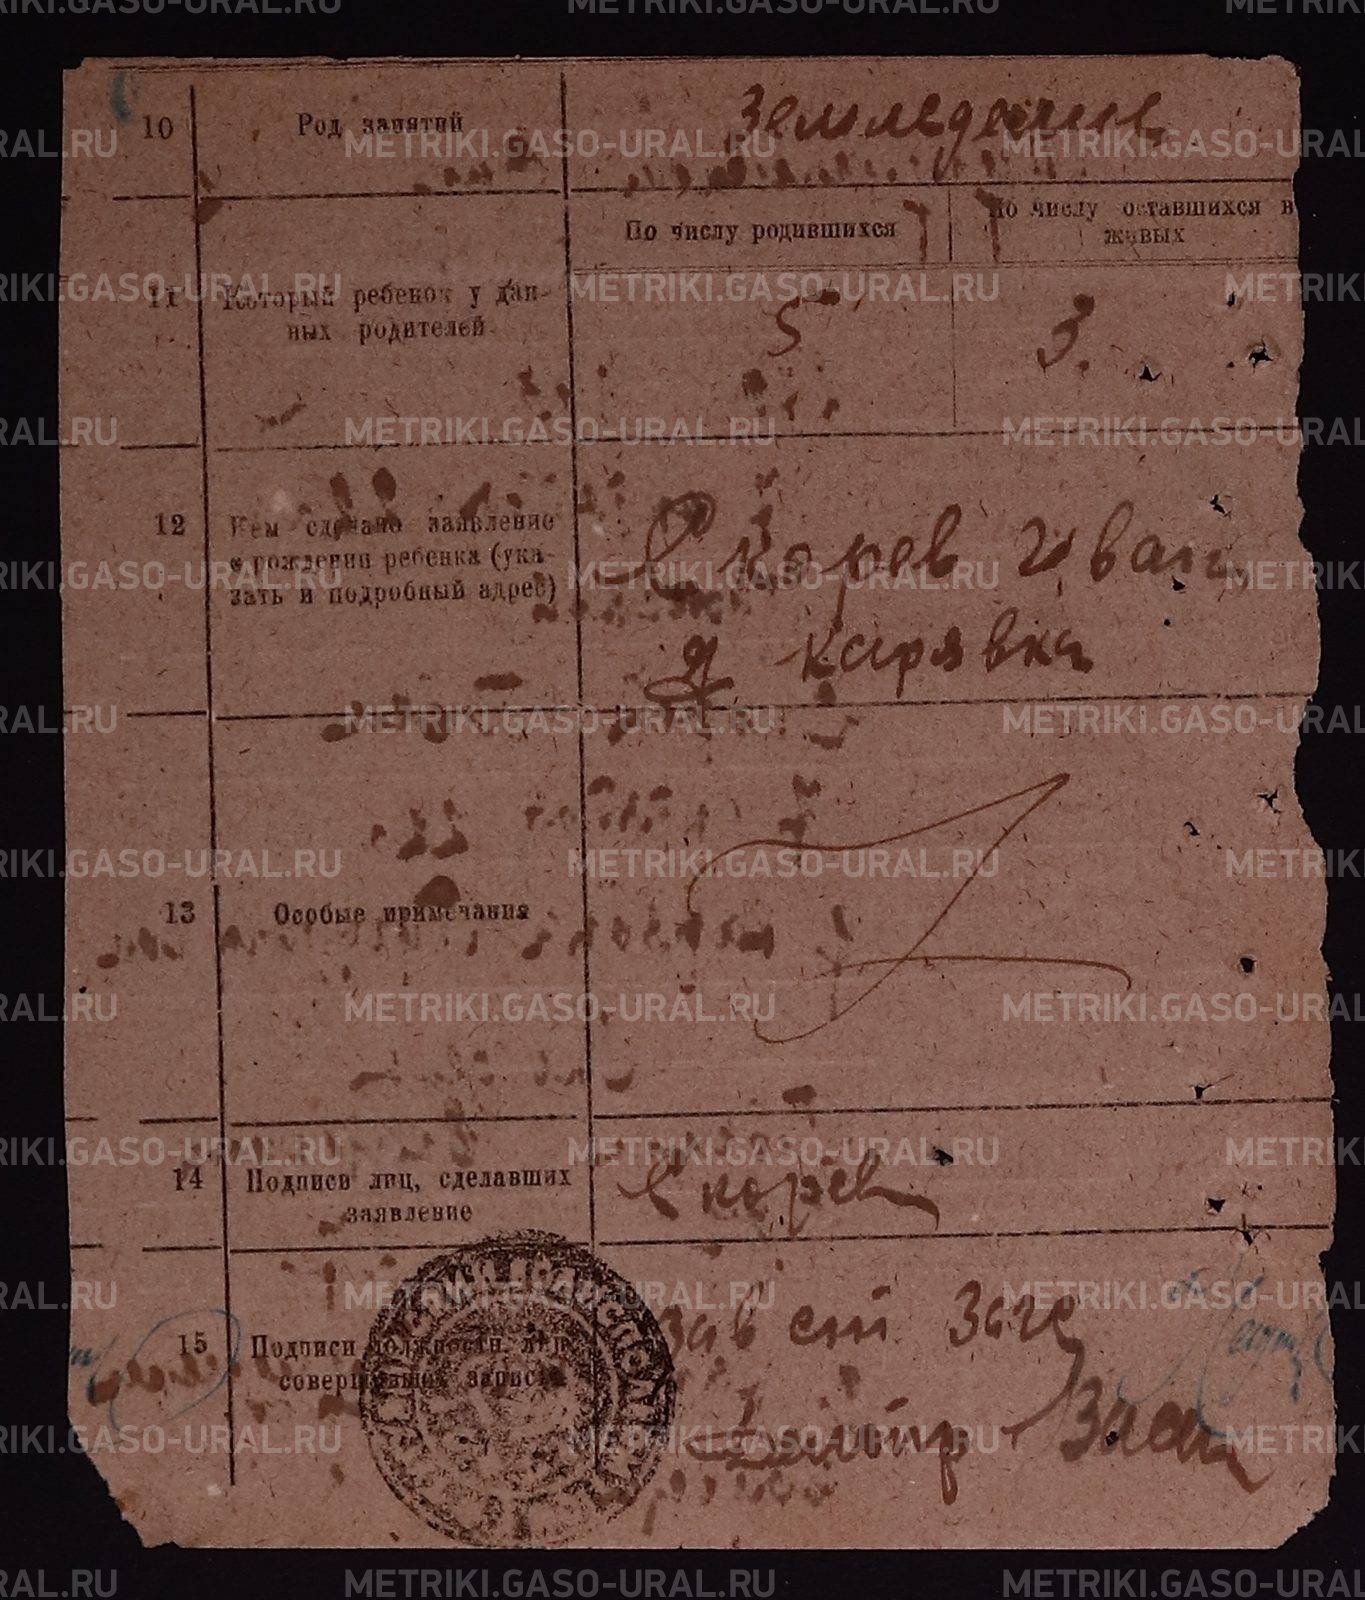 10 Род занятий Земледелие
По числу родившихся
По числу оставшихся в
живых
11 Который ребенок у дан-
ных родителей
5 3.
12 Кем сделано заявление
о рождении ребенка (ука-
зать и подробный адрес)
Скорев Иван
д карявка
13 Особые примечания
14 Подписи лиц, сделавших
заявление
Скорев
15 Подписи должностн. лиц,
совершивших запись
зав ст Заге
METRIKI.GASO-URAL.RU